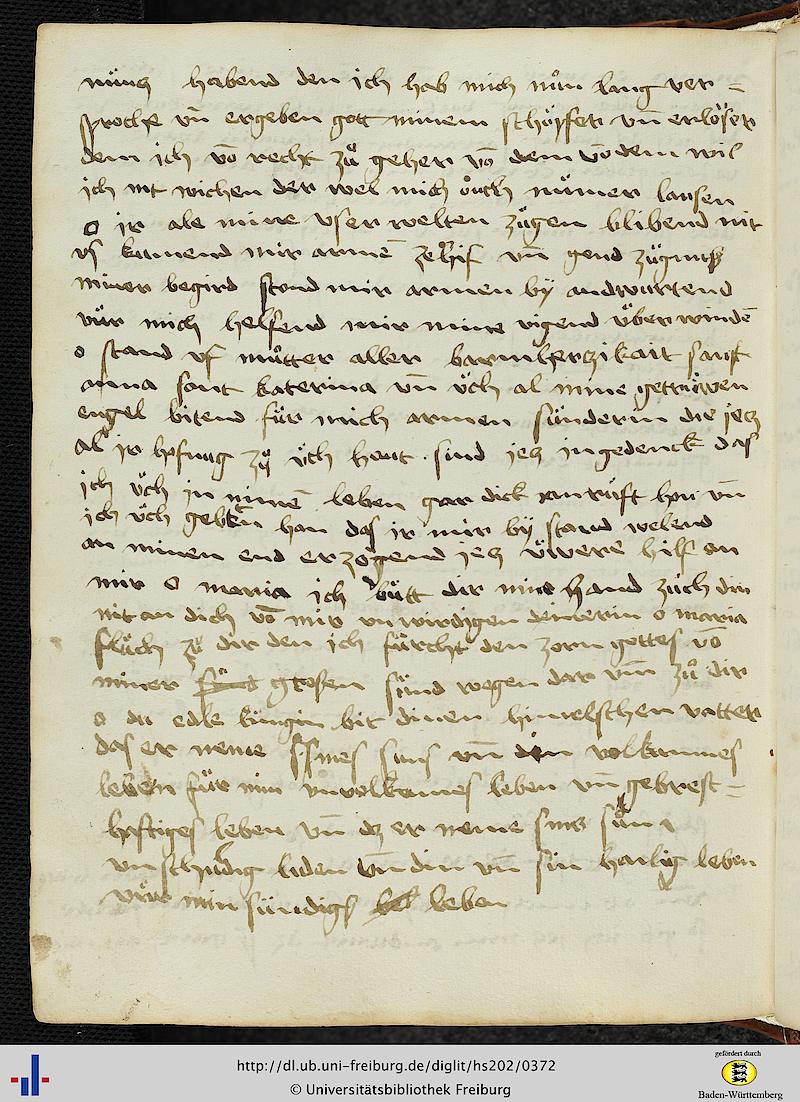 nüntz habend den ich hab mich nůn lang ver=
sproche vn̄ ergeben gott minem schöpfer vn̄ erlöser
dem ich vō recht zů geher vō dem vō dem wil
ich nit wichen der wel mich öuch nümer lausen
o ir ale mine vserwelten zügen blibend nit
vs kumend mir armē ze hilf vn̄ gend zügnus
miner begird stond mir armen by andwurtend
vür mich helfend mir mine vigend überwindē
o stand vf můtter aller barmherzikait sanft
anna sant katerina vn̄ üch al mine getrüwen
engel bitend für mich armen sünderin die jetz
al ir hofnug zů üch haut sind jetz ingedenck das
ich üch in minē leben gar dick anrüft hon vn̄
ich üch gebtē han das ir mir by stand welend
an minen end erzögend jetz üwere hilf an
mir o maria ich bütt dir mine hand züch din
nit an dich vō mir vnwirdigen deinterin o maria
flüch zů dir den ich fürcht den zorn gottes vō
miner grosen sünd wegen dar vm̄ zů dir
o du edle küngin bit dinen himelschen vatter
das er neme sines suns vn̄ din volkumes
leben für min vnvolkumes leben vn̄ gebrest=
haftiges leben vn̄ dz er neme sins sun
vnschuldig liden vn̄ din vn̄ sin hailig leben
vür min sündigs leben
http://dl.ub.uni-freiburg.de/diglit/hs202/0372
© Universitätsbibliothek Freiburg
gefördert durch
Baden-Württemberg